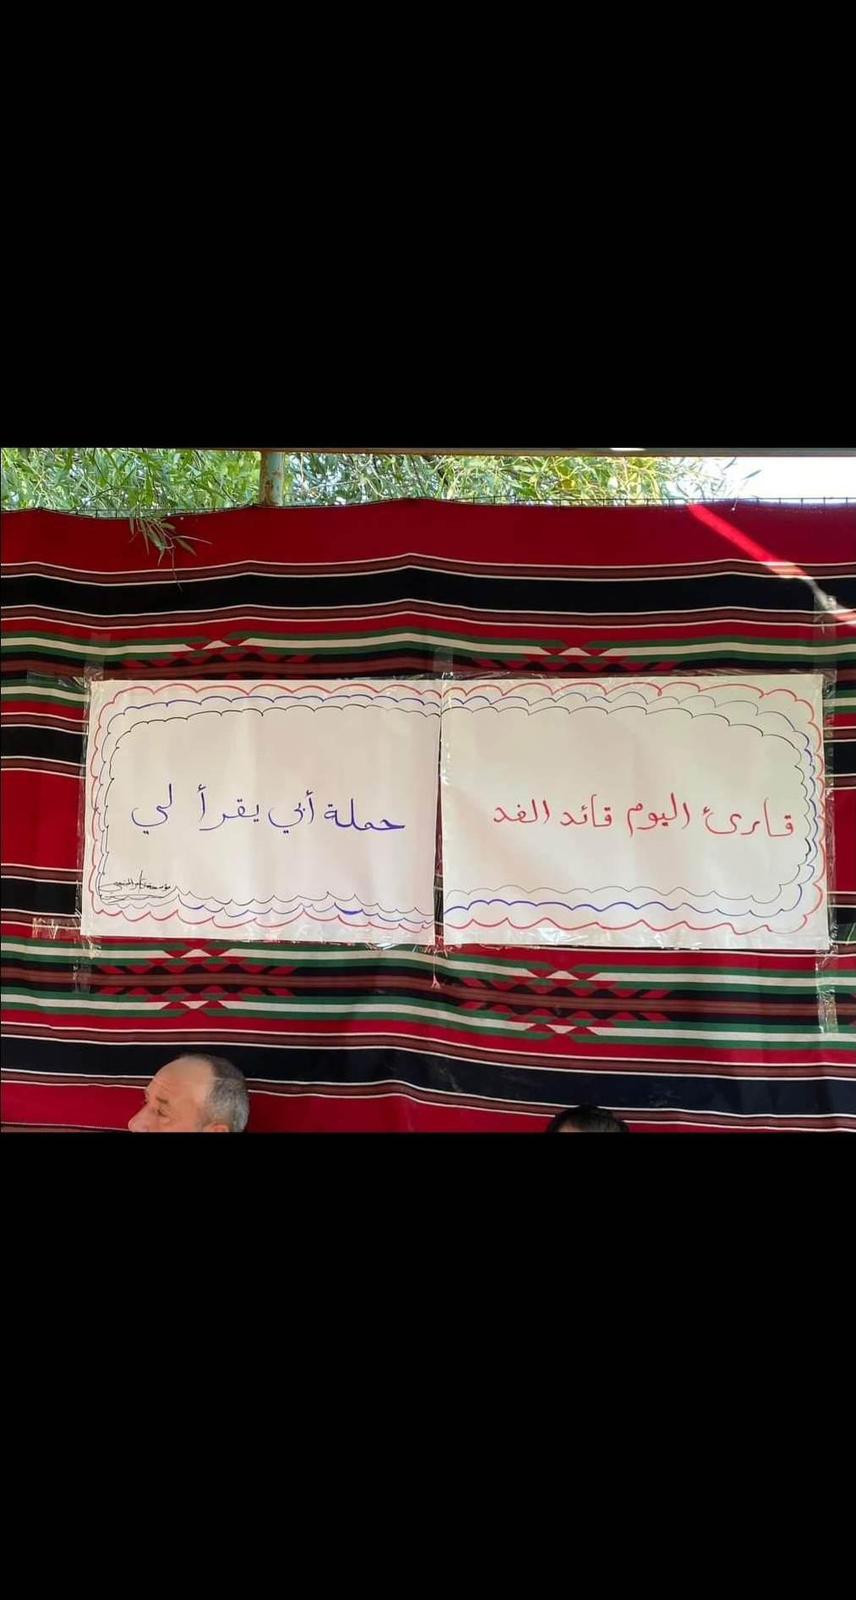 قارئ اليوم قائد الغد
حملة أبي يقرأ لي